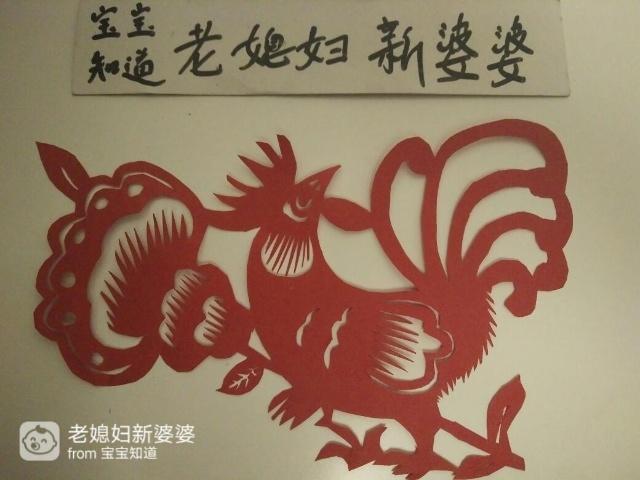 宝宝
知道 老媳妇 新婆婆
老媳妇新婆婆
from 宝宝知道